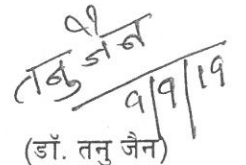 तनु जैन
9/9/19
(डॉ. तनु जैन)